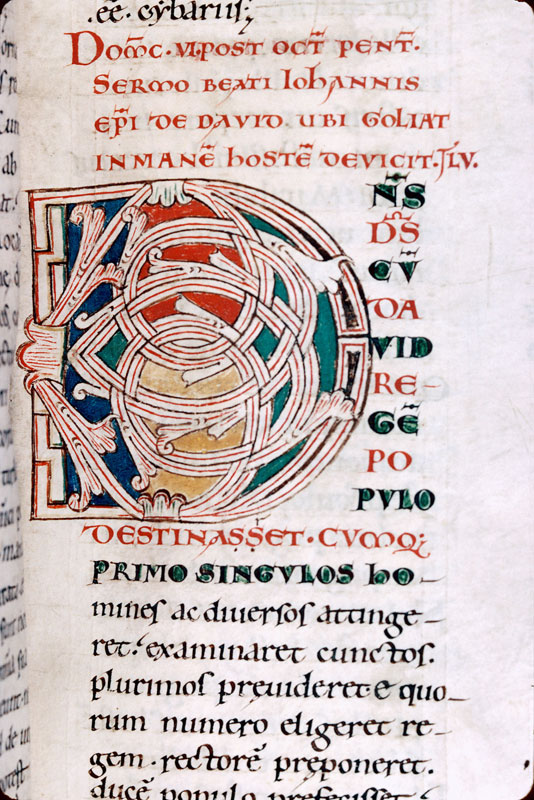 .eē. cybarius;
Domc̄. VI. post oct̄ pent̄.
Sermo beati Iohannis
ep̄i de David. ubi Goliat
in manē hostē devicit. Ʃlv.
D
N̄S
D̄S
CV̄
DA
VID
RE-
GĒ
PO
PVLO
DESTINASSET. CUMQ;
PRIMO SINGVLOS HO-
mines ac diversos attinge-
ret. examinaret cunctos.
plurimos previderet e quo-
rum numero eligeret re-
gem. rectorē preponeret.
ducē populo prefecisset.